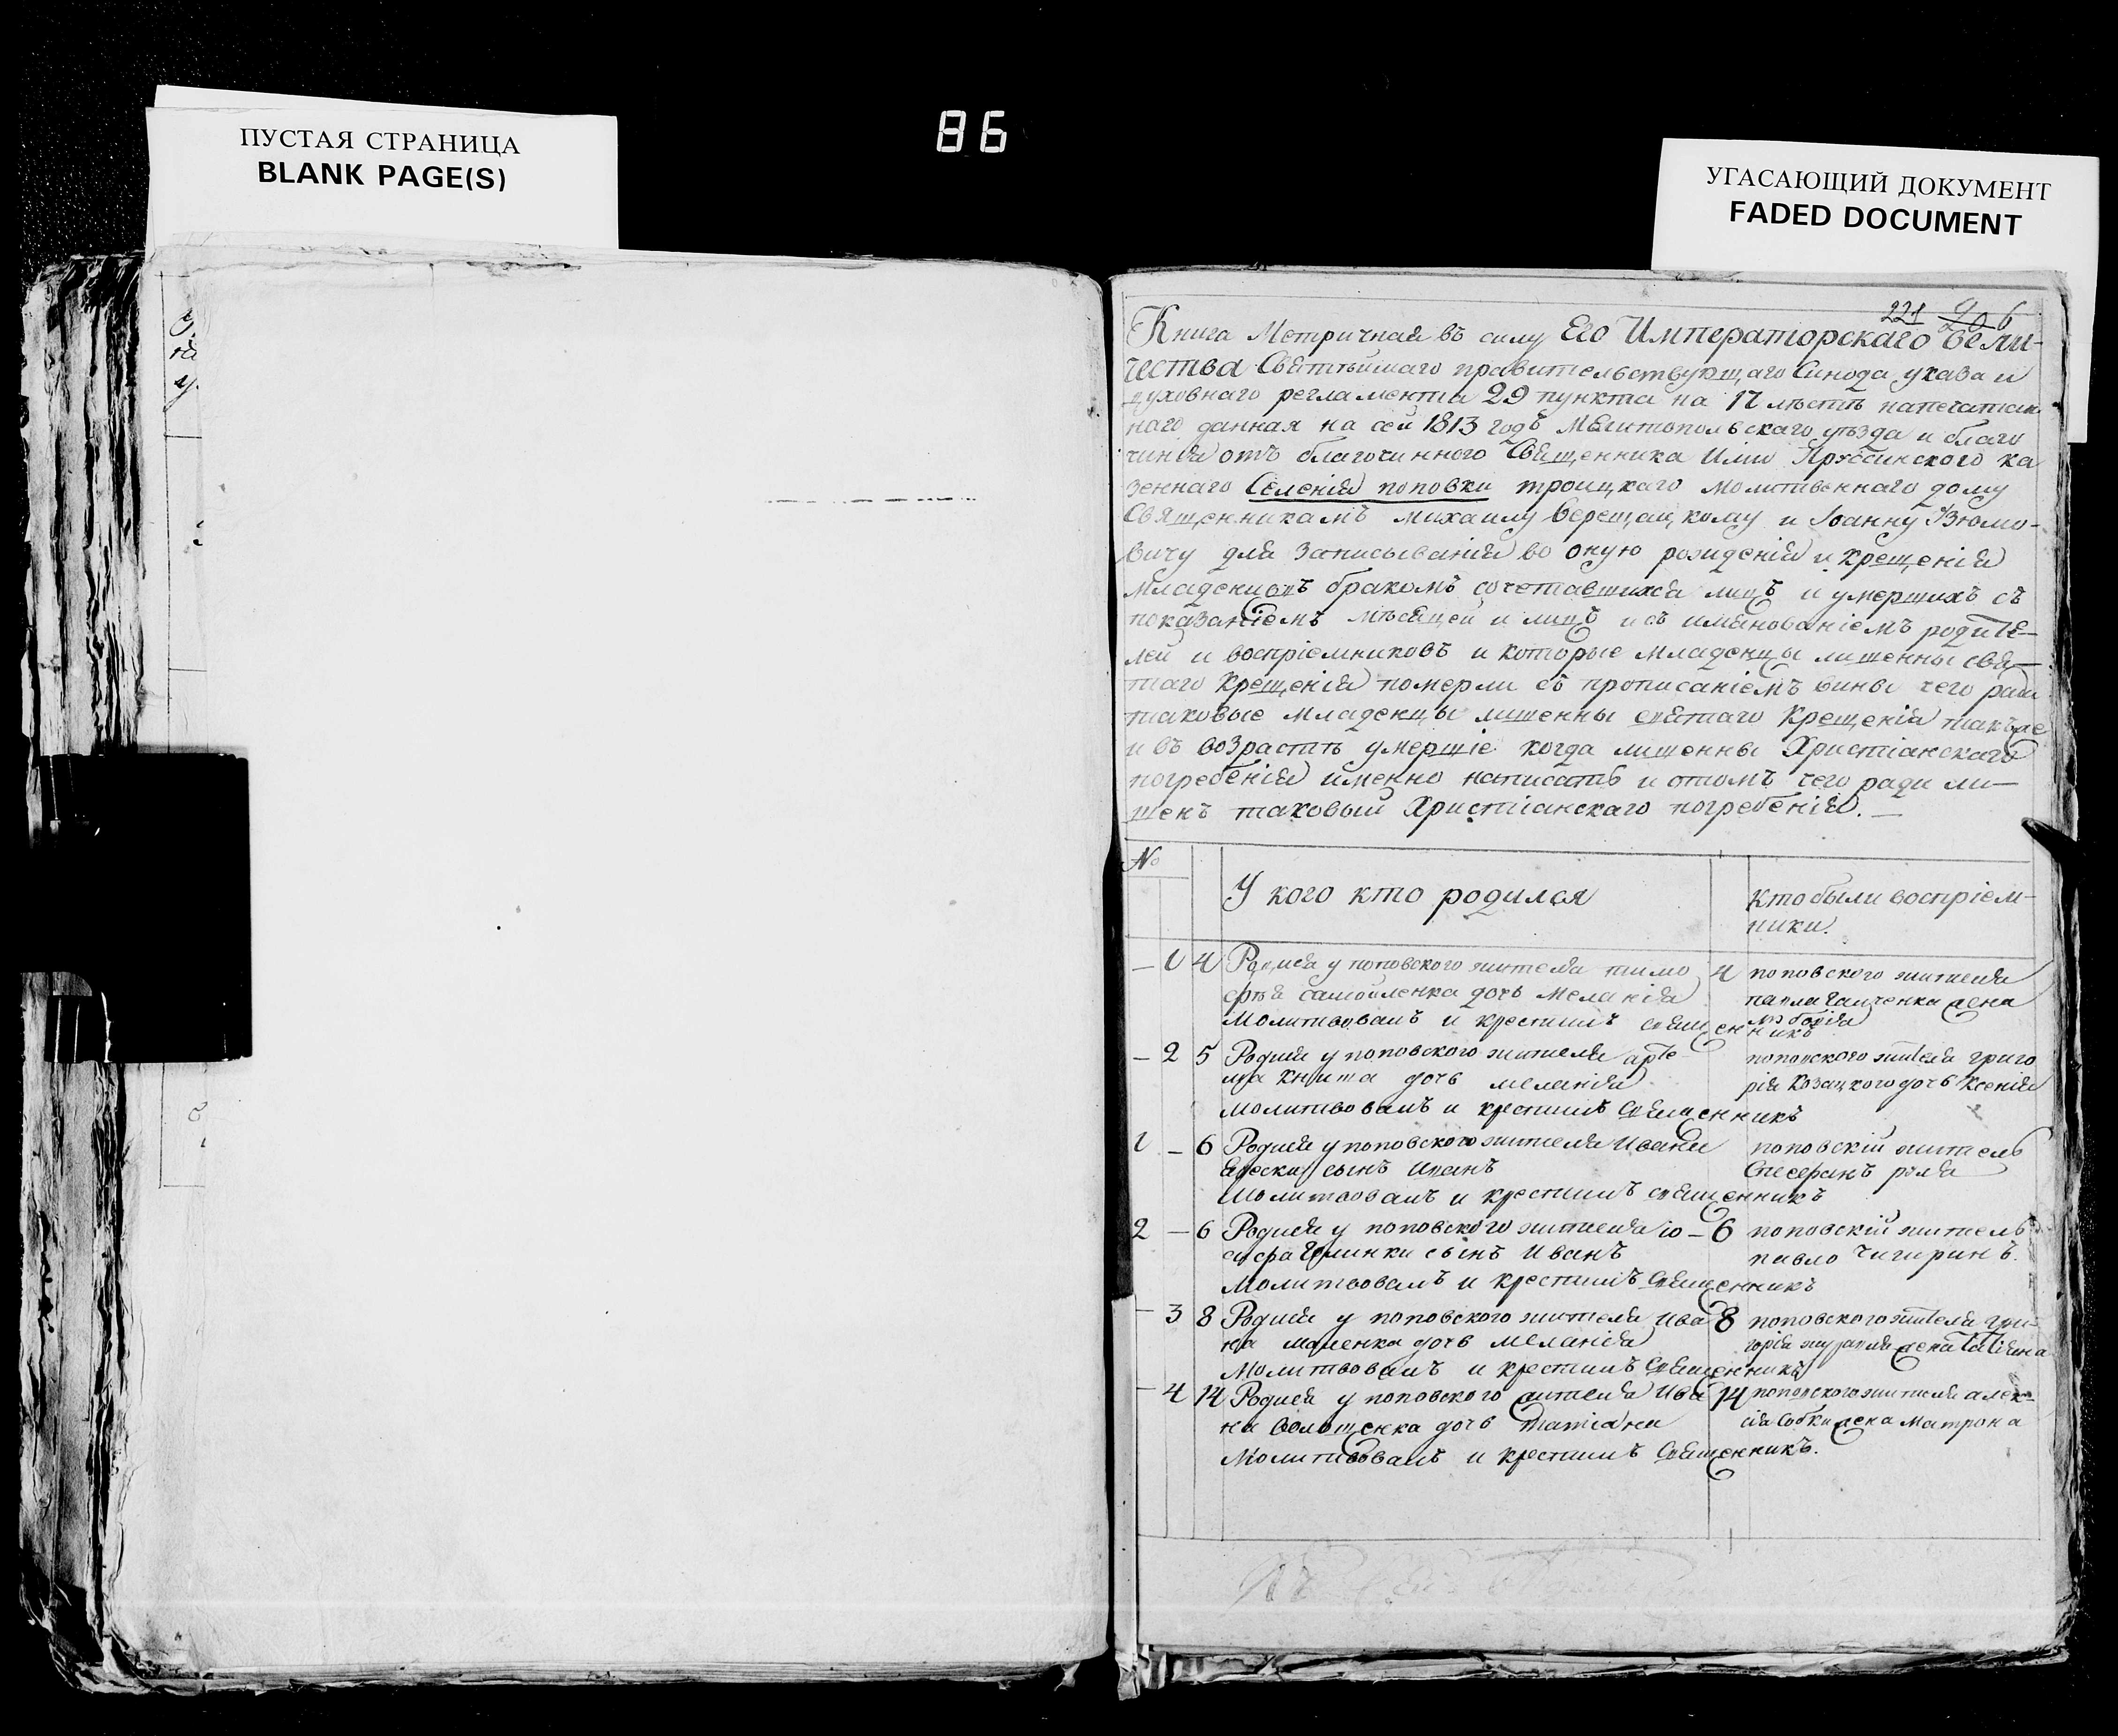 ПУСТАЯ СТРАНИЦА
BLANK PAGE(S)
86
УГАСАЮЩИЙ ДОКУМЕНТ
FADED DOCUMENT
221 206
Книга Метричная въ силу Его Императорскаго Вели-
чества Святѣйшаго правительствующаго Синода указа и
духовнаго регламента 29 пункта на 17 листѣ напечатан
наго данная на сей 1813 годъ Мелитопольскаго уѣзда и благо
чинія отъ благочиннаго Священника Иліи ка
зеннаго Селенія поповки троицкаго молитвеннаго дому
Священникамъ михаилу Верещацкому и Іоанну Изюмо-
вичу для записыванія во оную рожденія и крещенія
младенцовъ бракомъ сочетавшихся лицъ и умершихъ съ
показаніемъ мѣсяцей и лицъ и съ имянованіемъ родите-
лей и воспріемниковъ и которые младенцы лишенны свя-
таго крещенія померли съ прописаніемъ вины чего ради
таковые младенцы лишенны святаго крещенія также
и въ возрастѣ умершіе когда лишенны Христіанскаго
погребенія именно написать и отомъ чего ради ли-
шенъ таковый Христіанскаго погребенія.
№
У кого кто родился
Кто были воспріем-
ники.
– 1 4 Родися у поповского жителя тимо
ѳея самойленка дочь Меланія
Молитвовалъ и крестилъ священникъ
4 поповского жителя
павла Ганченка жена
– 2 5 Родися у поповского жителя арте
ма книша дочь меланія
молитвовалъ и крестилъ Священникъ
поповского жителя григо
рія Козацкого дочь Ксенія
1 – 6 Родися у поповского жителя Ивана
сынъ Иванъ
Молитвовалъ и крестилъ священникъ
поповскій житель
Стефанъ
2 – 6 Родися у поповского жителя іо
сифа Глинки сынъ Иванъ
Молитвовалъ и крестилъ Священникъ
– 6 поповскій житель
павло Чигиринъ.
– 3 8 Родися у поповского жителя Ива
на дочь меланія
Молитвовалъ и крестилъ Священникъ
8 поповского жителя гри-
горія журавля жена Татіяна
– 4 14 Родися у поповского жителя Ива
на Волошенка дочь татіана
Молитвовалъ и крестилъ Священникъ.
14 поповского жителя алек-
сія Собки жена Матрона